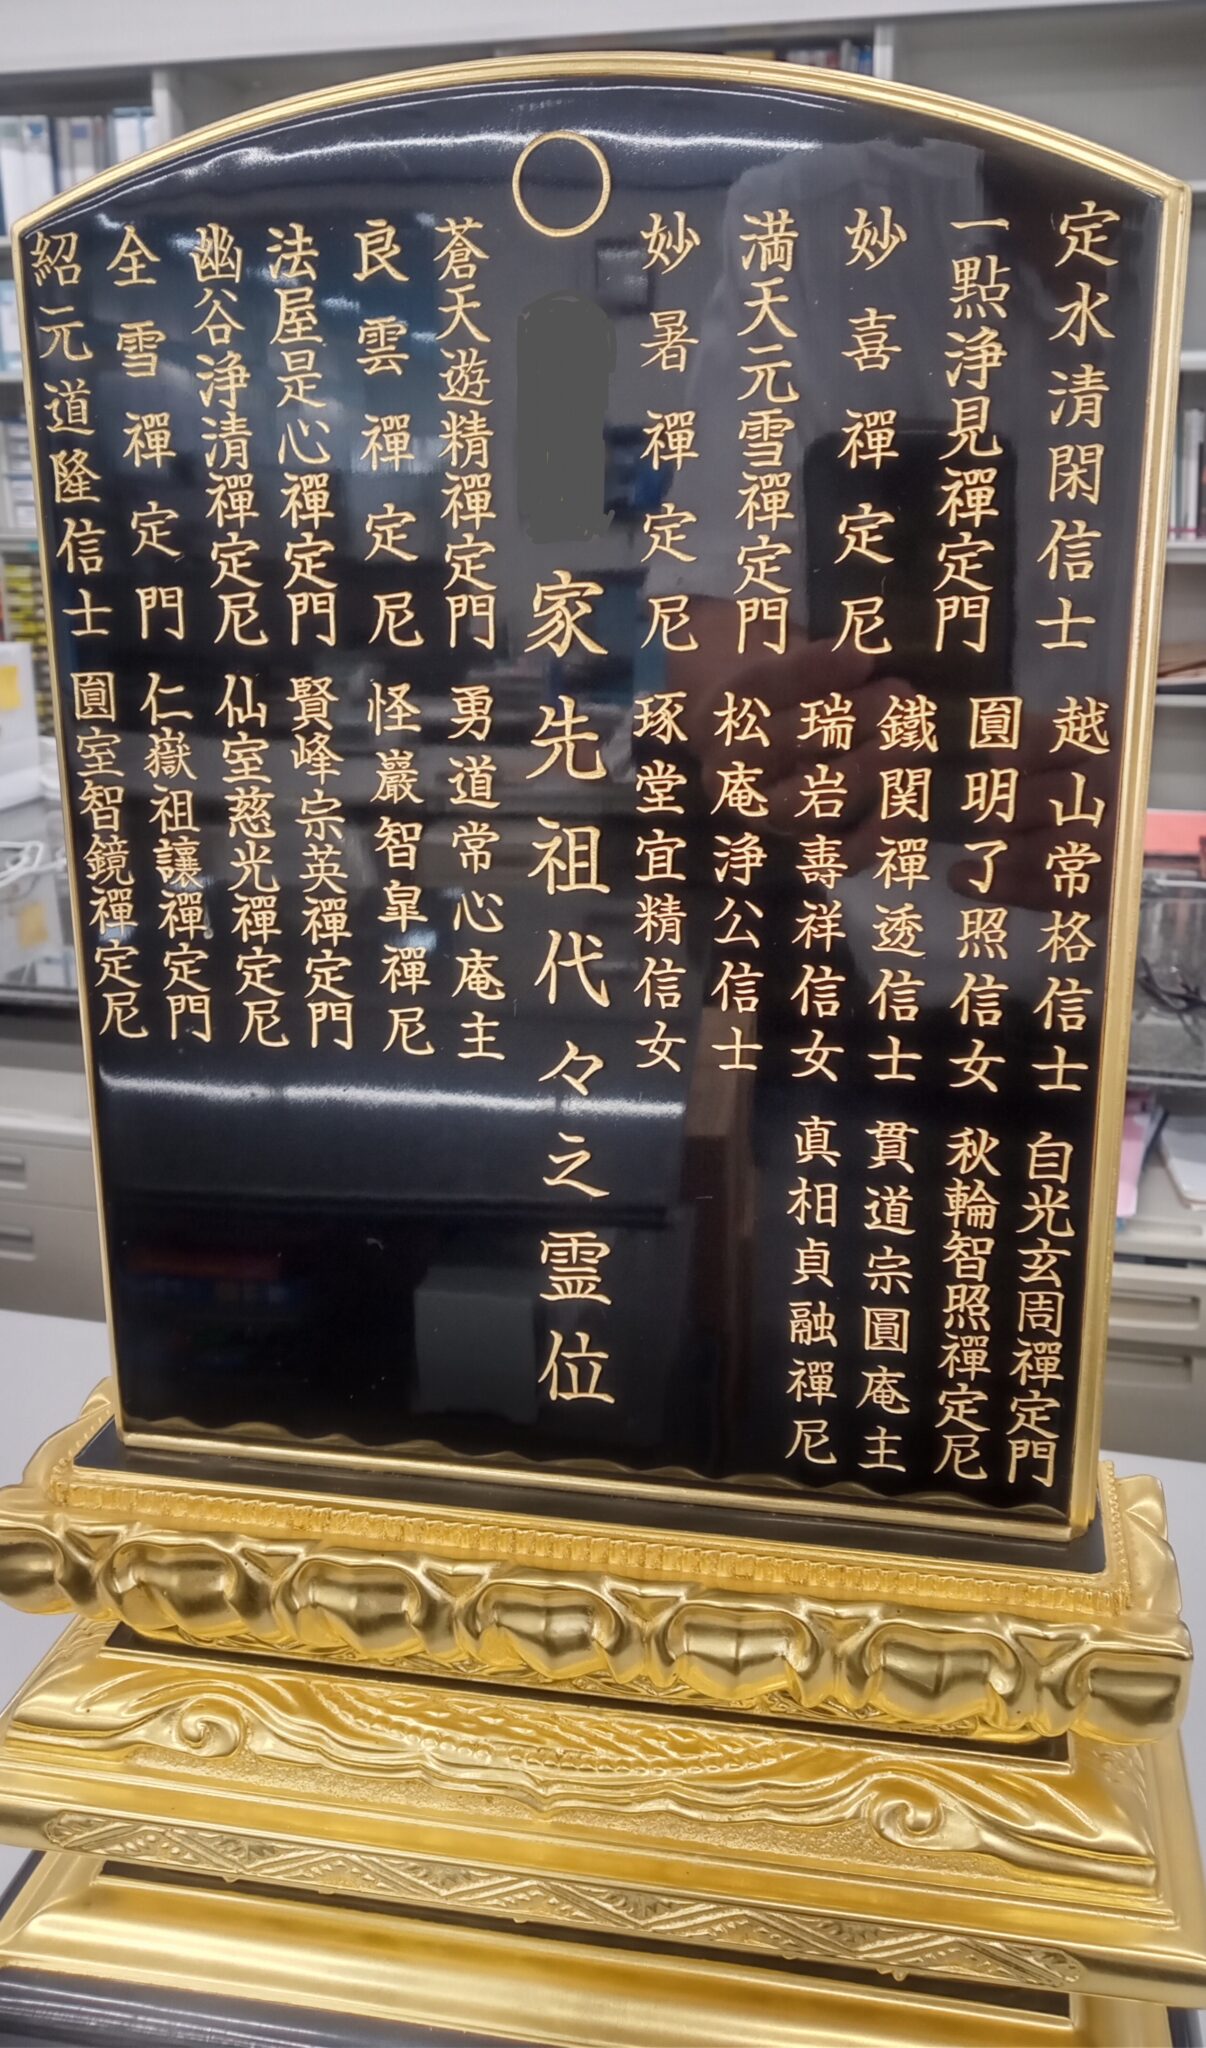 定水清閑信士
一點浄見禪定門
妙喜禪定尼
満天元雪禪定門
妙暑禪定尼
越山常格信士
圎明了照信女
鐵関禪透信士
瑞岩壽祥信女
松庵浄公信士
琢堂宜精信女
自光玄周禪定門
秋輪智照禪定尼
貫道宗圓庵主
真相貞融禪尼
家先祖代々之霊位
蒼天遊精禪定門
良雲禪定尼
法屋是心禪定門
幽谷浄清禪定尼
全雪禪定門
紹元道隆信士
勇道常心庵主
怪巖智皐禪尼
賢峰宗英禪定門
仙室慈光禪定尼
仁嶽祖讓禪定門
圎室智鏡禪定尼